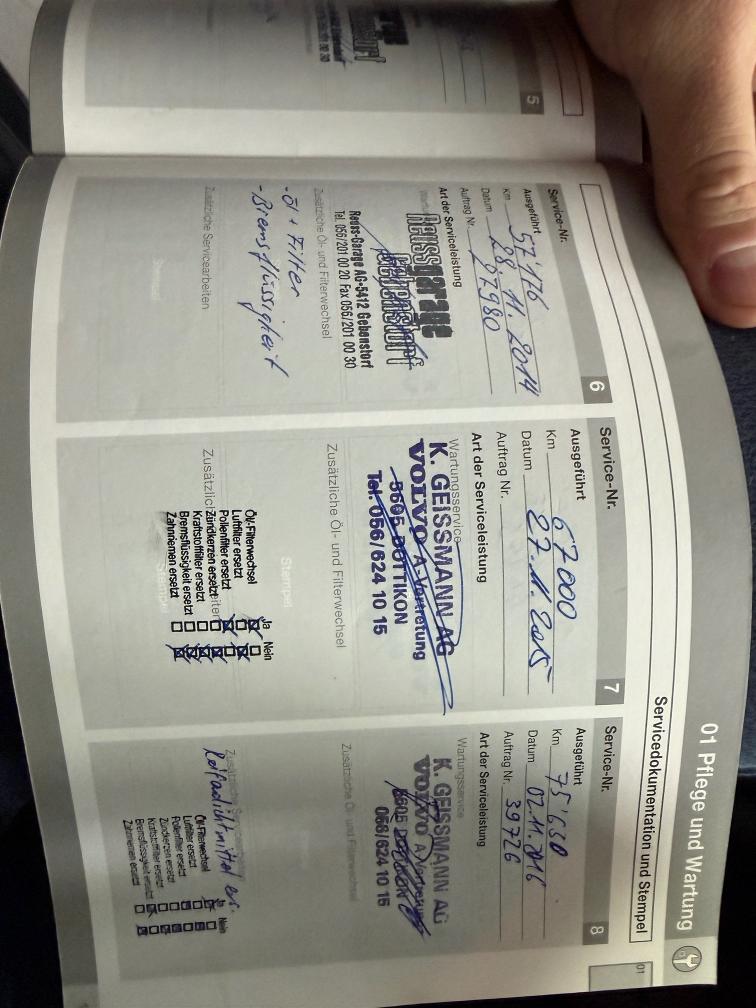 01 Pflege und Wartung
Servicedokumentation und Stempel
01
5
Service-Nr. 6
Ausgeführt
Km 57'176
Datum 28. 11. 2014
Auftrag Nr. 27980
Art der Serviceleistung
Reussgarage
Gebenstorf
Reuss-Garage AG-5412 Gebenstorf
Tel. 056/201 00 20 Fax 056/201 00 30
Zusätzliche Öl- und Filterwechsel
- Öl + Filter
- Bremsflüssigkeit
Zusätzliche Servicearbeiten
Service-Nr. 7
Ausgeführt
Km 67000
Datum 27. 11. 2015
Auftrag Nr.
Art der Serviceleistung
Wartungsservice
K. GEISSMANN AG
VOLVO A-Vertretung
5605 DOTTIKON
Tel. 056/624 10 15
Zusätzliche Öl- und Filterwechsel
Stempel
Ja Nein
Öl-Filterwechsel
Luftfilter ersetzt
Pollenfilter ersetzt
Zündkerzen ersetzt
Kraftstofffilter ersetzt
Bremsflüssigkeit ersetzt
Zahnriemen ersetzt
Service-Nr. 8
Ausgeführt
Km 75'630
Datum 02. 11. 2016
Auftrag Nr. 39726
Art der Serviceleistung
Wartungsservice
K. GEISSMANN AG
VOLVO A-Vertretung
5605 DOTTIKON
056/624 10 15
Zusätzliche Öl- und Filterwechsel
Ja Nein
Öl-Filterwechsel
Luftfilter ersetzt
Pollenfilter ersetzt
Zündkerzen ersetzt
Kraftstofffilter ersetzt
Bremsflüssigkeit ersetzt
Zahnriemen ersetzt